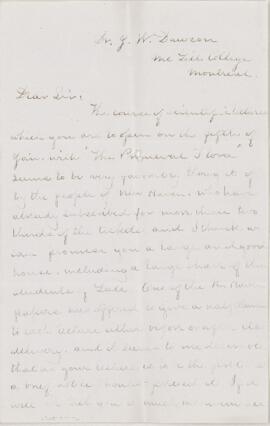 Dr. J. W. Dawson
Mc Gill College
Montreal.
Dear Sir:
The course of scientific lectures
which you are to open on the fifth of
Jan. with "The Primeval Flora"
seems to be very favorably thought of
by the people of New Haven, who have
already subscribed for more than two
thirds of the tickets and I think we
can promise you a large and good
house, including a large share of the
students of Yale. One of the New Haven
papers has offered to give a half column
to each lecture either before or after its
delivery, and it seems to me
that as your lecture is the first
a brief notice
will